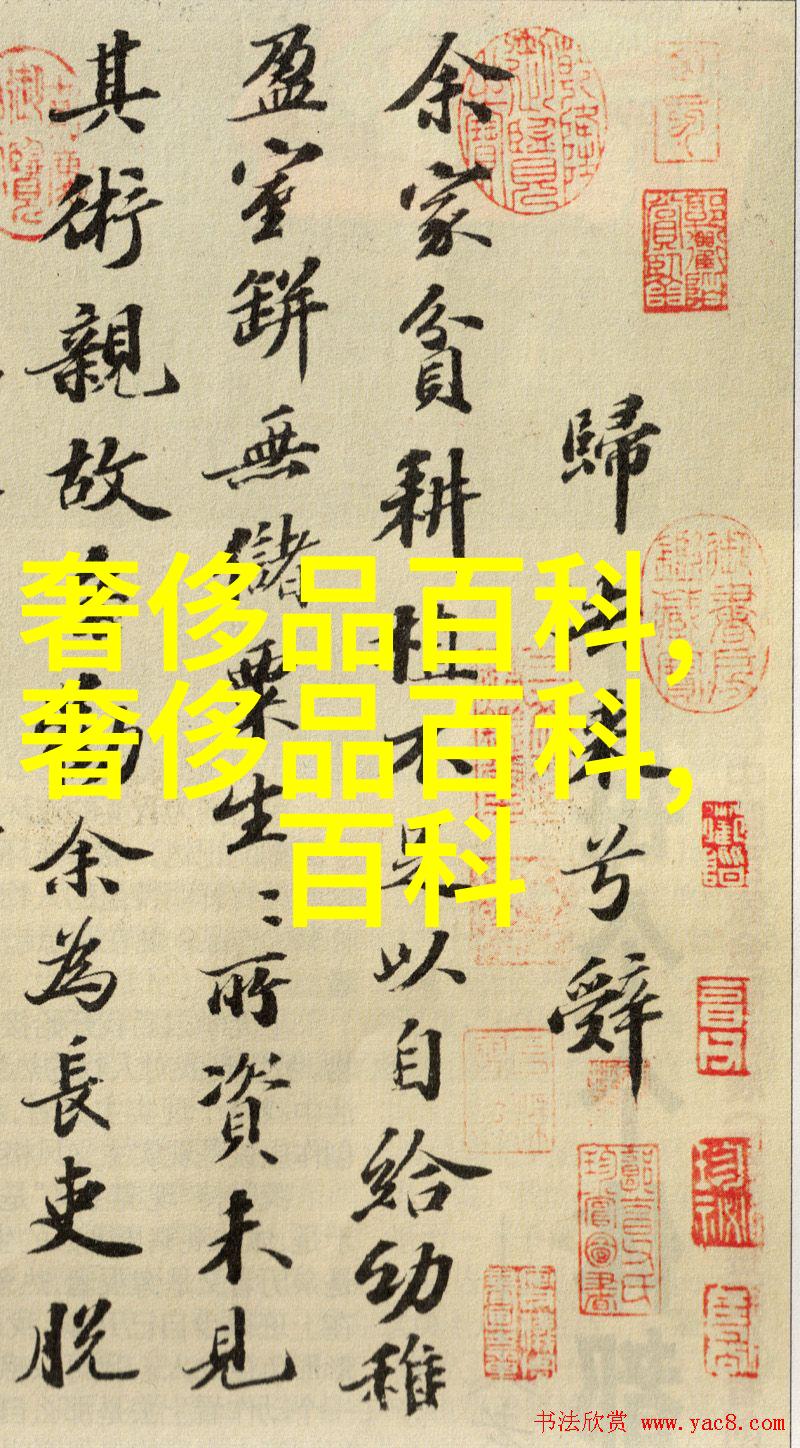 歸去來兮辭
余家貧耕植不足以自給幼稚
盈室缾無儲粟生〻所資未見
其術親故多勸余為長吏脫
奢侈品百科,
奢侈品百科,
百科
乾隆御覽之寶
御書房鑑藏寶
书法欣赏 www.yac8.com